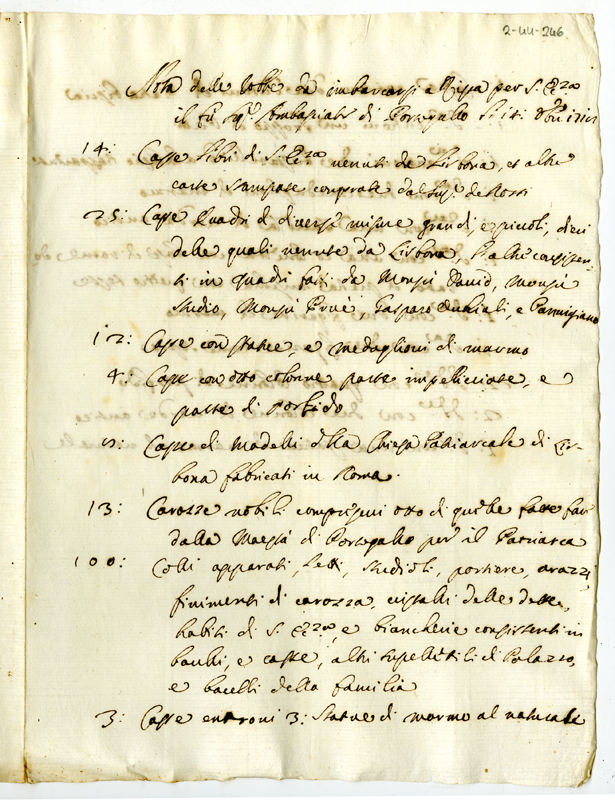 2-44-246
Nota delle robbe da imbarcarsi a Rippa per S. Ecc.za
il fù Sig.r Ambasciat.e di Portogallo
14: Casse libri di S. Ecc.za venuti da Lisbona, et altre
carte stampate comprate dal Sig.r de Rossi
25: Casse Quadri di diverse misure grandi, e piccoli, dieci
delle quali venute da Lisbona, l'altre consisten-
ti in quadri fatti da Monsù David, Monsù
Studio, Monsù Gasparo e Parmigiano
12: Casse con statue, e medaglioni di marmo
4: Casse con otto colonne parte impellicciate, e
parte di Porfido
Casse di Modelli della Chiesa Patriarcale di Lis-
bona fabricati in Roma.
13: Carozze nobili compresevi otto di quelle fatte fare
dalla Maestà di Portogallo per il Patriarca
100: Colli apparati, Letti, studioli, portiere, arazzi,
finimenti di carozza, cristalli delle dette,
habiti di S. Ecc.za, e biancherie consistenti in
bauli, e casse, altri supellettili di Palazzo,
e bauelli della famiglia
3: Casse entroni 3: Statue di marmo al naturale